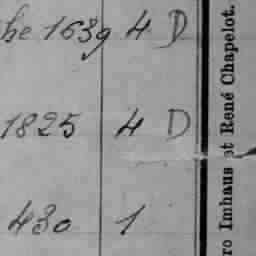 he 1639 4 D
1825 4 D
430 1
ro Imhaus et René Chapelot.